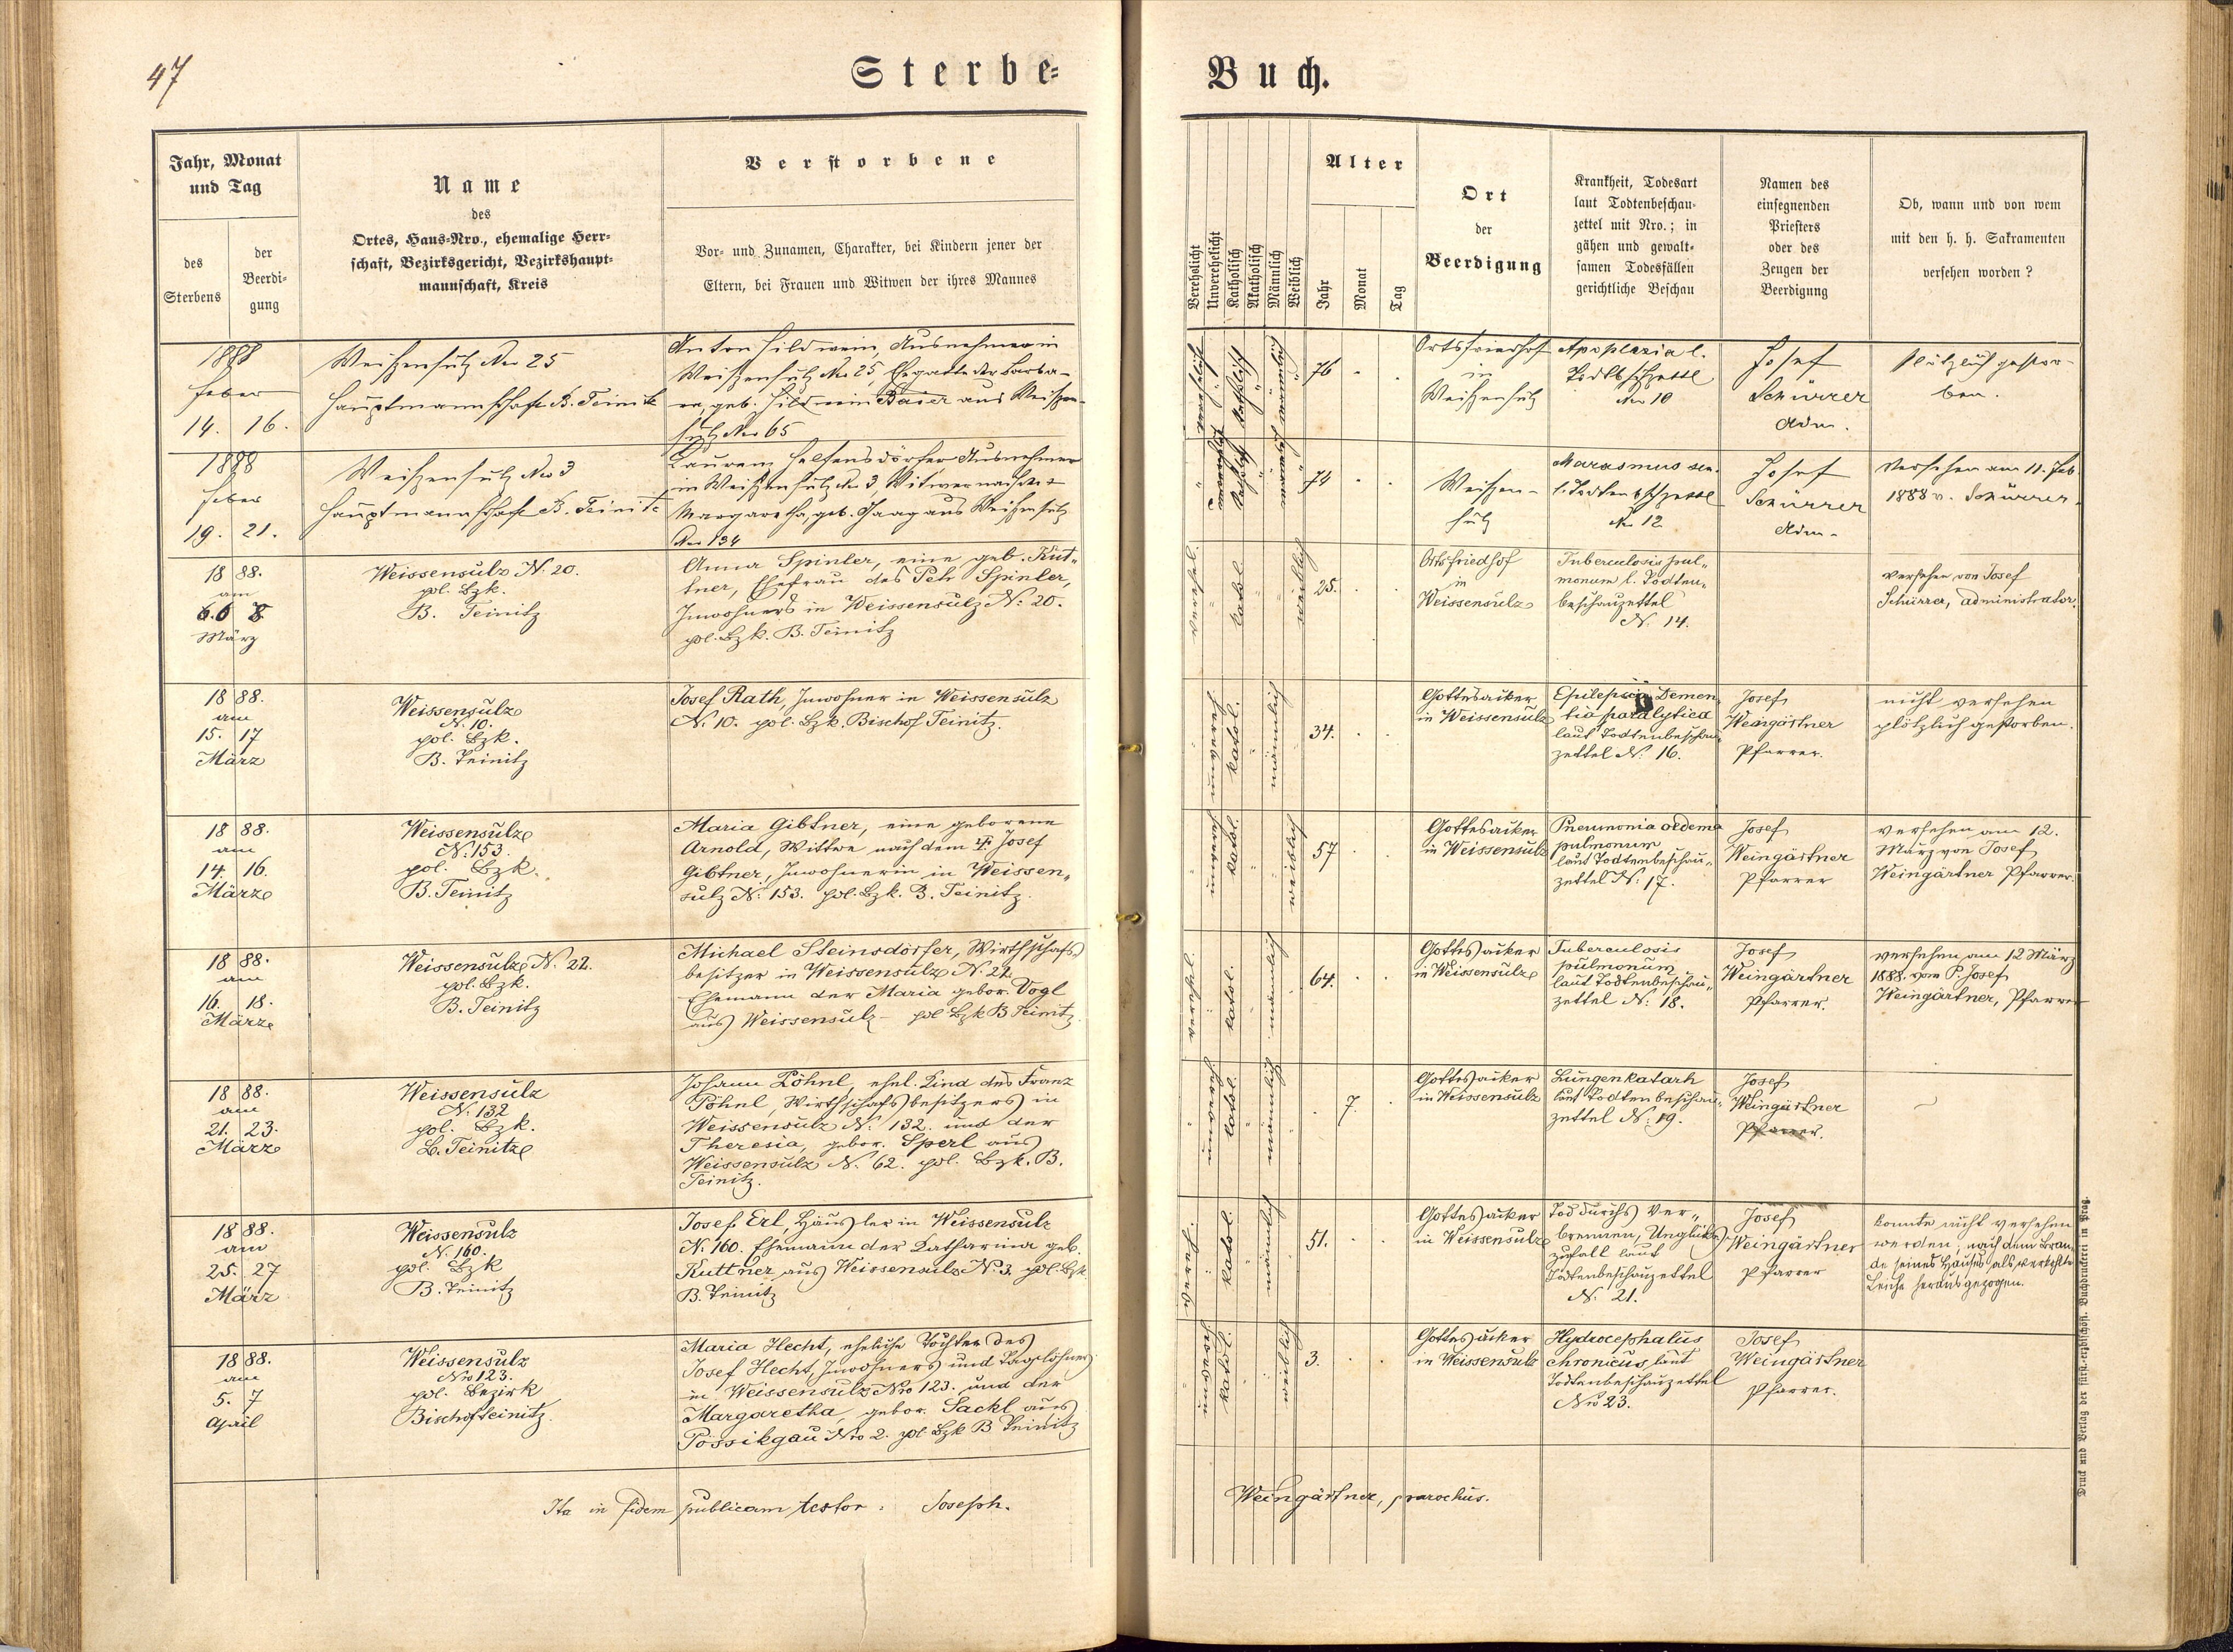 47
Sterbe=
Buch.
Jahr, Monat
und Tag
des
Sterbens
der
Beerdi-
gung
Name
des
Ortes, Haus-Nro., ehemalige Herr-
schaft, Bezirksgericht, Bezirkshaupt-
mannschaft, Kreis
Verstorbene
Vor- und Zunamen, Charakter, bei Kindern jener der
Eltern, bei Frauen und Witwen der ihres Mannes
Verehelicht
Unverehelicht
Katholisch
Akatholisch
Männlich
Weiblich
Alter
Jahr
Monat
Tag
Ort
der
Beerdigung
Krankheit, Todesart
laut Todtenbeschau-
zettel mit Nro.; in
gähen und gewalt-
samen Todesfällen
gerichtliche Beschau
Namen des
einsegnenden
Priesters
oder des
Zeugen der
Beerdigung
Ob, wann und von wem
mit den h. h. Sakramenten
versehen worden?
1888
Feber
14. 16.
Weißensulz Nro 25
Hauptmannschaft B. Teinitz
Anton Hildwein, Ausnehmer in
Weißensulz Nro 25, Ehegatte der Barba-
ra, geb. Hildwein Baier aus Weißen-
sulz Nro 65
76
Ortsfriedhof
in
Weißensulz
Apoplexia l.
Nro 10
Josef
Schürrer
Adm.
Plötzlich gestor-
ben.
1888
Feber
19. 21.
Weißensulz Nro 3
Hauptmannschaft B. Teinitz
Laurenz Helfensdörfer Ausnehmer
in Weißensulz Nro 3, Witwer nach der +
Margaretha, geb. Haag aus Weißensulz
Nro 134
74
Weißen-
sulz
Marasmus sen.
No 12
Josef
Schürrer
Adm.
Versehen am 11. Feb
1888 v. Schürrer.
18 88.
am
6. 8.
März
Weissensulz N. 20.
pol. Bzk.
B. Teinitz
Anna Spinler, eine geb. Kut„
tner, Ehefrau des Petr Spinler,
Inwohners in Weissensulz N: 20.
pol. Bzk. B. Teinitz
verehel.
katol.
weiblich
25.
Ortsfriedhof
in
Weissensulz
Tuberculosis pul„
monum l. Todten„
beschauzettel
N. 14.
versehen von Josef
Schürrer, Administrator.
18 88.
am
15. 17
März
Weissensulz
N. 10.
pol. Bzk.
B. Teinitz
Josef Rath, Inwohner in Weissensulz
N. 10. pol. Bzk. Bischof Teinitz.
unverehel.
katol.
männlich
34.
Gottesacker
in Weissensulz
Demen
tia paralytica
laut Todtenbeschau„
zettel N. 16.
Josef
Weingärtner
Pfarrer.
nicht versehen
plötzlich gestorben.
18 88.
am
14. 16.
März
Weissensulz
N: 153.
pol. Bzk.
B. Teinitz
Maria Gibtner, eine geborene
Arnold, Wittwe nach dem † Josef
Gibtner, Inwohnerin in Weissen„
sulz N: 153. pol. Bzk. B. Teinitz.
unverehel.
katol.
weiblich
57
Gottesacker
in Weissensulz
Pneumonia oedema
pulmonum
laut Todtenbeschau„
zettel N: 17.
Josef
Weingärtner
Pfarrer
versehen am 12.
März von Josef
Weingärtner Pfarrer.
18 88.
am
16. 18.
März
Weissensulz N. 22.
pol. Bzk.
B. Teinitz
Michael Steinsdörfer, Wirthschafts„
besitzer in Weissensulz N. 22
Ehemann der Maria gebor. Vogl
aus Weissensulz - pol Bzk B Teinitz.
verehel.
katol.
männlich
64.
Gottesacker
in Weissensulz
Tuberculosis
pulmonum
laut Todtenbeschau„
zettel N: 18.
Josef
Weingärtner
Pfarrer.
versehen am 12 März
1888. vom P. Josef
Weingärtner, Pfarrer
18 88.
am
21. 23.
März
Weissensulz
N. 132
pol. Bzk.
B. Teinitz
Johann Pöhnl, ehel. Kind des Franz
Pöhnl, Wirthschaftsbesitzers in
Weissensulz N. 132. und der
Theresia, gebor. Sperl aus
Weissensulz N. 62. pol. Bzk. B.
Teinitz.
unverehel.
katol.
männlich
7.
Gottesacker
in Weissensulz
Lungenkatarh
laut Todtenbeschau„
zettel N. 19.
Josef
Weingärtner
Pfarrer.
18 88.
am
25. 27
März
Weissensulz
N. 160.
pol. Bzk
B. Teinitz
Josef Erl, Häusler in Weissensulz
N. 160. Ehemann der Katharina geb.
Kuttner aus Weissensulz N. 3 pol. Bzk
B. Teinitz
verehel.
katol.
männlich
51.
Gottesacker
in Weissensulz
Tod durchs Ver„
brennen, Unglücks„
zufall laut
Todtenbeschauzettel
N: 21.
Josef
Weingärtner
Pfarrer
konnte nicht versehen
werden, nach dem Bran„
de seines Hauses als verkohlte
Leiche herausgezogen.
18 88.
am
5. 7
April
Weissensulz
Nro 123.
pol. Bezirk
Bischofteinitz.
Maria Hecht, eheliche Tochter des
Josef Hecht, Inwohners und Taglöhners
in Weissensulz Nro 123. und der
Margaretha, gebor. Sackl aus
Possikgau Nro 2. pol Bzk B Teinitz
unverehel.
katol.
weiblich
3.
Gottesacker
in Weissensulz
Hydrocephalus
chronicus laut
Todtenbeschauzettel
Nro 23.
Josef
Weingärtner
Pfarrer.
Ita in fidem publicam testor. Joseph.
Weingärtner, parochus.
Druck und Verlag der fürst.-erzbischöfl. Buchdruckerei in Prag.